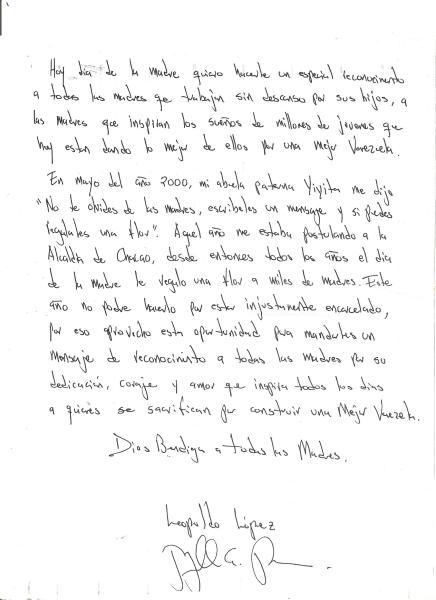 Hoy día de la madre quiero hacerle un especial reconocimiento
a todas las madres que trabajan sin descanso por sus hijos, a
las madres que inspiran los sueños de millones de jovenes que
hoy estan dando lo mejor de ellos por una mejor Venezuela.
En Mayo del año 2000, mi abuela paterna Yiyita me dijo
"No te olvides de las madres, escribeles un mensaje y si puedes
regalales una flor". Aquel año me estaba postulando a la
Alcaldía de Chacao, desde entonces todos los años el día
de la madre le regalo una flor a miles de madres. Este
año no podre hacerlo por estar injustamente encarcelado,
por eso aprovecho esta oportunidad para mandarles un
Mensaje de reconocimiento a todas las Madres por su
dedicación, coraje y amor que inspira todos los días
a quienes se sacrifican por construir una Mejor Venezuela.
Dios Bendiga a todas las Madres.
Leopoldo López